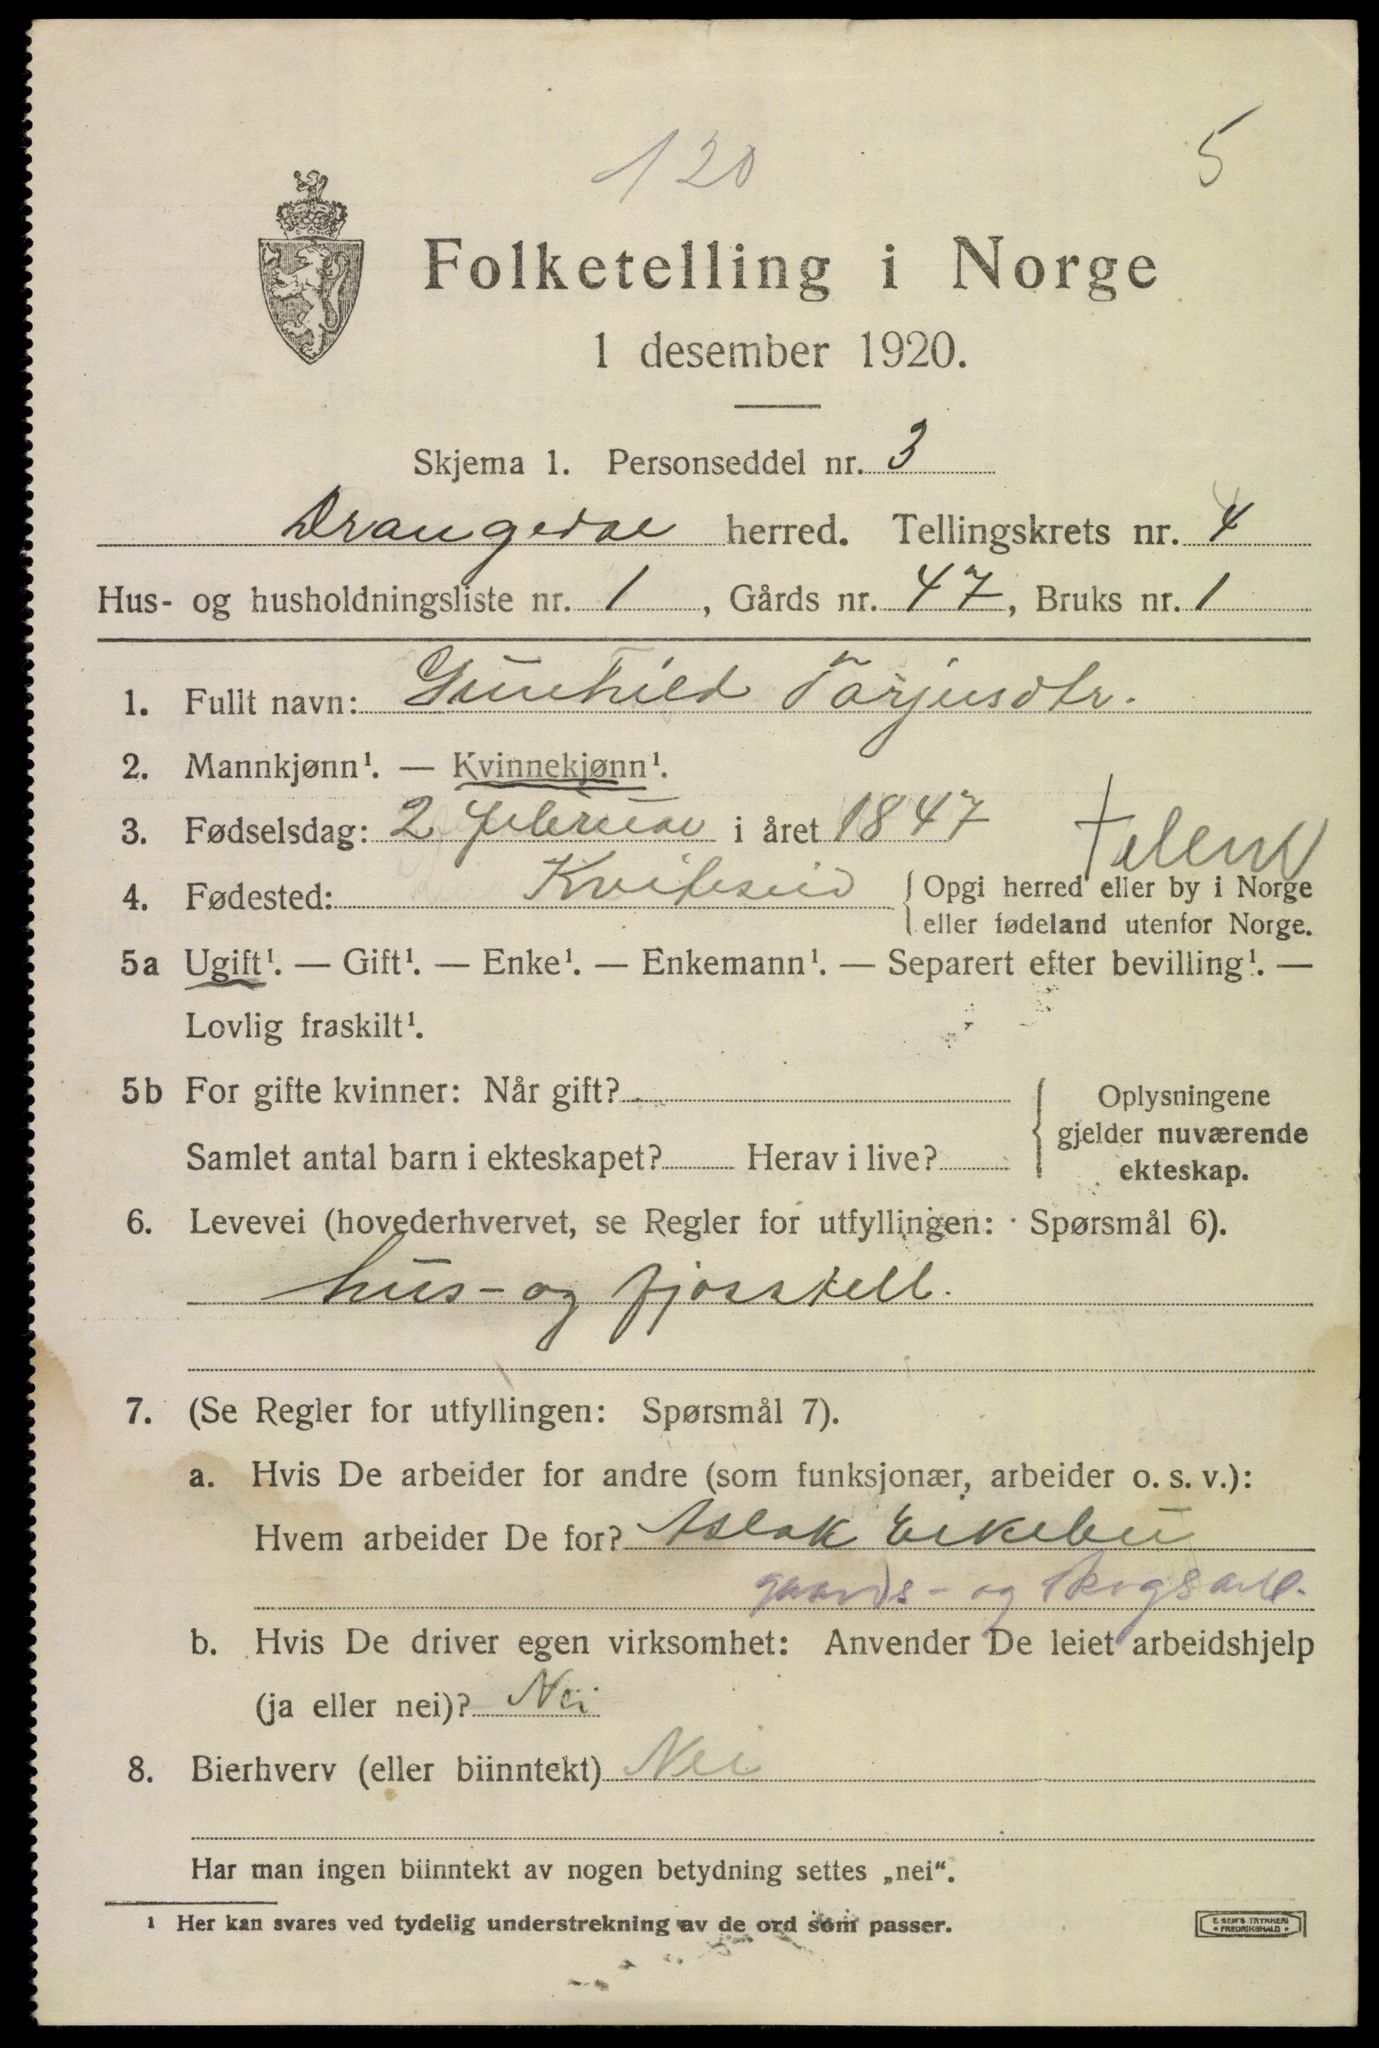 120 5
Folketelling i Norge
1 desember 1920.
Skjema 1. Personseddel nr. 3
Drangedal herred. Tellingskrets nr. 4
Hus- og husholdningsliste nr. 1, Gårds nr. 47, Bruks nr. 1
1. Fullt navn: Gunhild Tarjusdtr.
2. Mannkjønn¹. — Kvinnekjønn¹.
3. Fødselsdag: 2 februar i året 1847
Telem
4. Fødested: Kviteseid { Opgi herred eller by i Norge
eller fødeland utenfor Norge.
5a Ugift¹. — Gift¹. — Enke¹. — Enkemann¹. — Separert efter bevilling¹. —
Lovlig fraskilt¹.
5b For gifte kvinner: Når gift?
Samlet antal barn i ekteskapet? Herav i live?
{ Oplysningene
gjelder nuværende
ekteskap.
6. Levevei (hovederhvervet, se Regler for utfyllingen: Spørsmål 6).
hus- og fjosstell.
7. (Se Regler for utfyllingen: Spørsmål 7).
a. Hvis De arbeider for andre (som funksjonær, arbeider o. s. v.):
Hvem arbeider De for? Aslak Eikebu
gaards- og skogsarb.
b. Hvis De driver egen virksomhet: Anvender De leiet arbeidshjelp
(ja eller nei)? Nei
8. Bierhverv (eller biinntekt) Nei
Har man ingen biinntekt av nogen betydning settes „nei“.
¹ Her kan svares ved tydelig understrekning av de ord som passer.
E. SEM'S TRYKKERI
* FREDRIKSHALD *